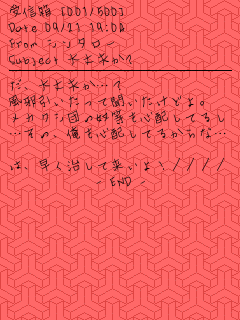 受信箱 [001/500]
Date 09/21 19:04
From シンタロー
Subject 大丈夫か?
だ、大丈夫か…?
風邪引いたって聞いたけどよ。
メカクシ団の奴等も心配してるし
…その、俺も心配してるからな…
は、早く治して来いよ!////
- END -